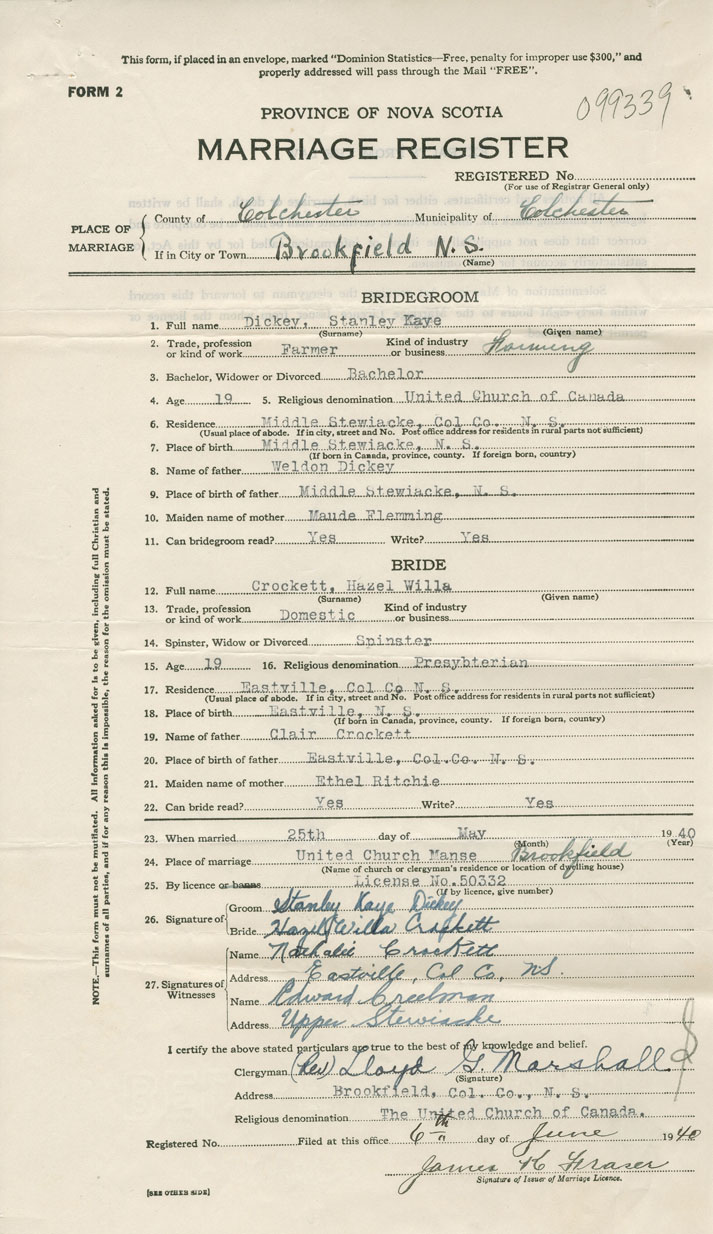 This form, if placed in an envelope, marked "Dominion Statistics—Free, penalty for improper use $300," and
properly addressed will pass through the Mail "FREE".
FORM 2
099339
PROVINCE OF NOVA SCOTIA
MARRIAGE REGISTER
REGISTERED No
(For use of Registrar General only)
PLACE OF MARRIAGE
County of Colchester Municipality of Colchester
If in City or Town Brookfield N. S.
(Name)
BRIDEGROOM
1. Full name Dickey, Stanley Kaye
(Surname) (Given name)
2. Trade, profession or kind of work Farmer Kind of industry or business Farming
3. Bachelor, Widower or Divorced Bachelor
4. Age 19 5. Religious denomination United Church of Canada
6. Residence Middle Stewiacke, Col Co. N. S.
(Usual place of abode. If in city, street and No. Post office address for residents in rural parts not sufficient)
7. Place of birth Middle Stewiacke, N. S.
(If born in Canada, province, county. If foreign born, country)
8. Name of father Weldon Dickey
9. Place of birth of father Middle Stewiacke, N. S.
10. Maiden name of mother Maude Flemming
11. Can bridegroom read? Yes Write? Yes
BRIDE
12. Full name Crockett, Hazel Willa
(Surname) (Given name)
13. Trade, profession or kind of work Domestic Kind of industry or business
14. Spinster, Widow or Divorced Spinster
15. Age 19 16. Religious denomination Presybterian
17. Residence Eastville, Col Co N. S.
(Usual place of abode. If in city, street and No. Post office address for residents in rural parts not sufficient)
18. Place of birth Eastville, N. S.
(If born in Canada, province, county. If foreign born, country)
19. Name of father Clair Crockett
20. Place of birth of father Eastville, Col.Co. N. S.
21. Maiden name of mother Ethel Ritchie
22. Can bride read? Yes Write? Yes
23. When married 25th day of May 1940
(Month) (Year)
24. Place of marriage United Church Manse Brookfield
(Name of church or clergyman's residence or location of dwelling house)
25. By licence or banns License No. 50332
(If by licence, give number)
26. Signature of
Groom Stanley Kaye Dickey
Bride Hazel Willa Crockett
27. Signatures of Witnesses
Name Nathalie Crockett
Address Eastville, Col Co, NS.
Name Edward Creelman
Address Upper Stewiacke
I certify the above stated particulars are true to the best of my knowledge and belief.
Clergyman (Rev) Lloyd G. Marshall
(Signature)
Address Brookfield, Col. Co., N. S.
Religious denomination The United Church of Canada.
Registered No. Filed at this office 6th day of June 1940
James K Fraser
Signature of Issuer of Marriage Licence.
[SEE OTHER SIDE]
NOTE.—This form must not be mutilated. All information asked for is to be given, including full Christian and
surnames of all parties, and if for any reason this is impossible, the reason for the omission must be stated.